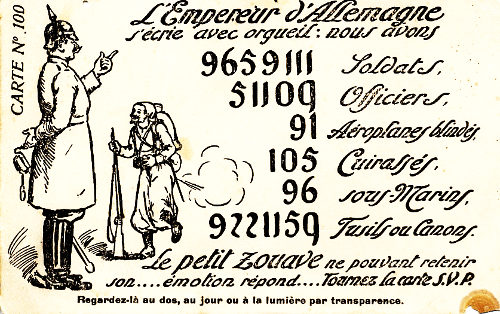 CARTE Nº. 100
L'Empereur d'Allemagne
s'écrie avec orgueil: nous avons
9659111 Soldats,
51109 Officiers,
91 Aéroplanes blindés,
105 Cuirassés,
96 sous-Marins,
9221159 Fusils ou Canons.
Le petit Zouave ne pouvant retenir
son.... émotion répond.... Tournez la carte S.V.P.
Regardez-là au dos, au jour ou à la lumière par transparence.